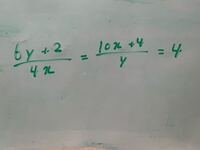 (6y + 2)/(4x) = (10x + 4)/y = 4